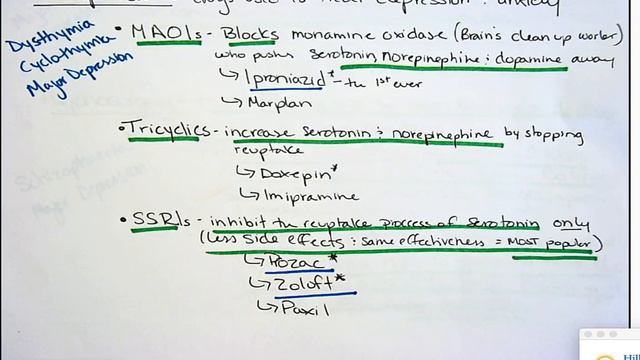 drugs used to treat depression & anxiety
Dysthymia
Cyclothymia
Major Depression
• MAOIs - Blocks monamine oxidase (Brain's clean up worker)
who pushes serotonin, norepinephine & dopamine away
↳ Iproniazid* - the 1st ever
↳ Marplan
• Tricyclics - increase serotonin & norepinephine by stopping
reuptake
↳ Doxepin*
↳ Imipramine
• SSRIs - inhibit the reuptake process of serotonin only
(less side effects & same effectiveness = most popular)
↳ Prozac*
↳ Zoloft*
↳ Paxil
Major Depression
Hil